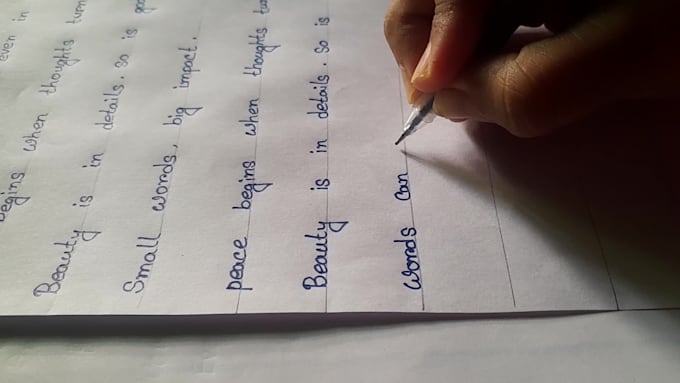 even in
begins when thoughts turn
Beauty is in details. So is
Small words, big impact.
peace begins when thoughts
Beauty is in details. So is
words can